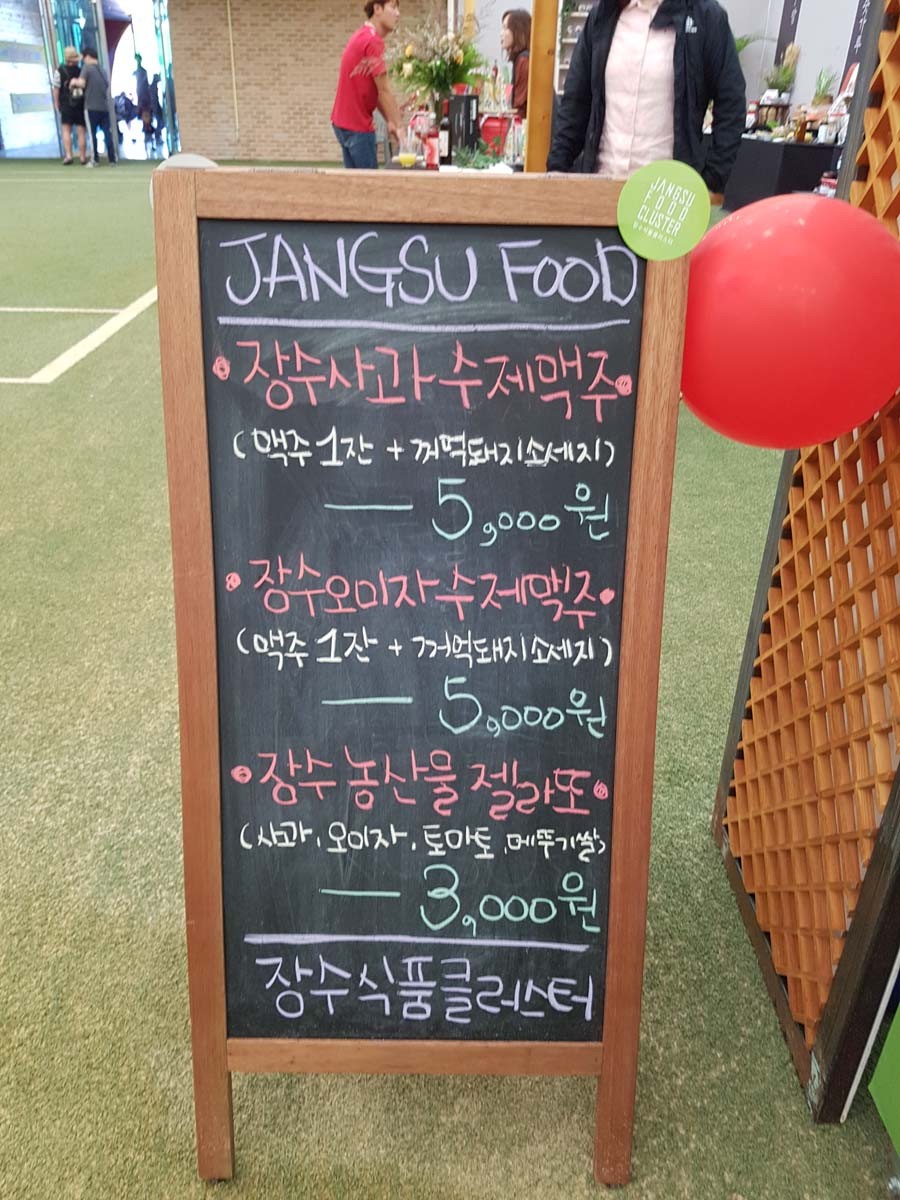 JANGSU
FOOD
CLUSTER
장수식품클러스터
JANGSU FOOD
장수사과 수제맥주
(맥주 1잔 + 꺼먹돼지소세지)
— 5,000원
장수오미자 수제맥주
(맥주 1잔 + 꺼먹돼지소세지)
— 5,000원
장수 농산물 젤라또
(사과, 오미자, 토마토, 메뚜기쌀)
— 3,000원
장수식품클러스터